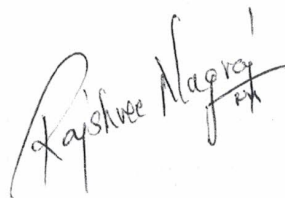 Rajshree Nagraj